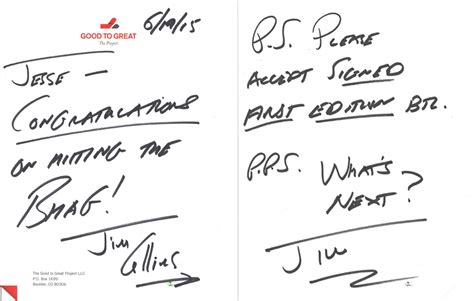 GOOD TO GREAT
The Project
6/19/15
JESSE —
CONGRATULATIONS
ON HITTING THE
BHAG!
Jim Collins
The Good to Great Project LLC
P.O. Box 1699
Boulder, CO 80306
P.S. PLEASE
ACCEPT SIGNED
FIRST EDITION BTL.
P.P.S. WHAT'S
NEXT?
JIM